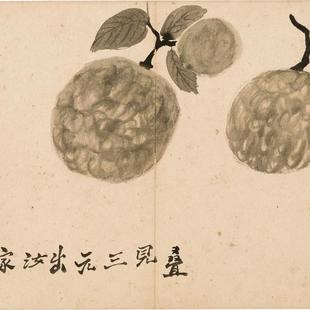 疊見三元出汝家